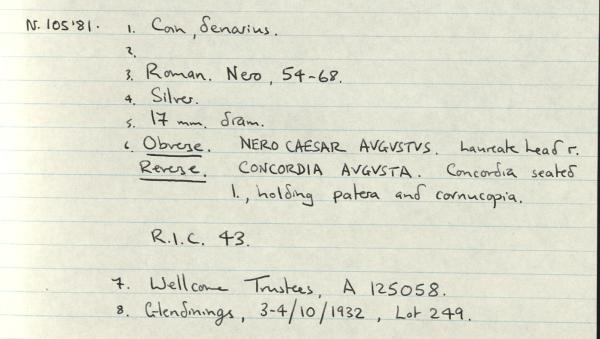 N.105'81. 1. Coin, denarius.
2.
3. Roman. Nero, 54-68.
4. Silver.
5. 17 mm. diam.
6. Obverse. NERO CAESAR AVGVSTVS. Laureate head r.
Reverse. CONCORDIA AVGVSTA. Concordia seated
l., holding patera and cornucopia.
R.I.C. 43.
7. Wellcome Trustees, A 125058.
8. Glendinings, 3-4/10/1932, Lot 249.